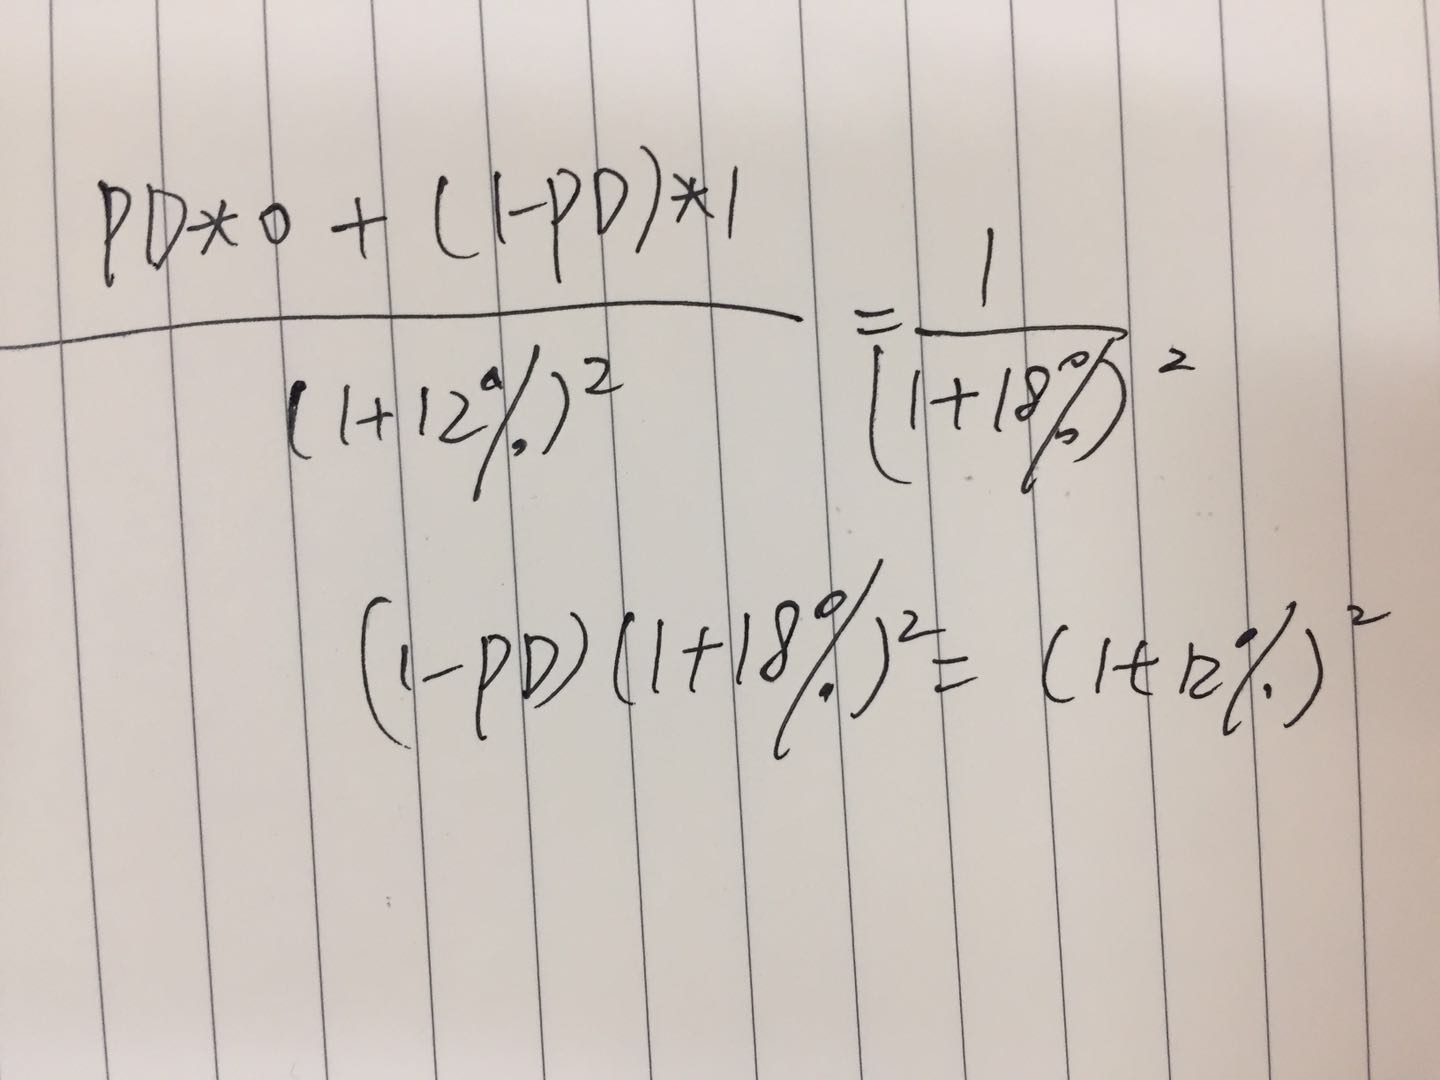 PD*0 + (1-PD)*1 / (1+12%)² = 1 / (1+18%)²
(1-PD)(1+18%)² = (1+12%)²